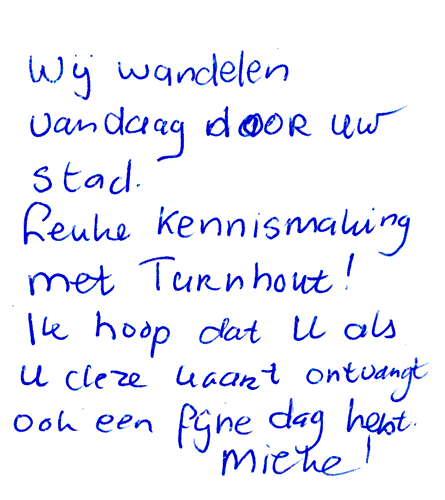 Wij wandelen
vandaag dOOR uw
stad.
Leuke kennismaking
met Turnhout!
Ik hoop dat U als
U deze kaart ontvangt
ook een fijne dag hebt.
Mieke!